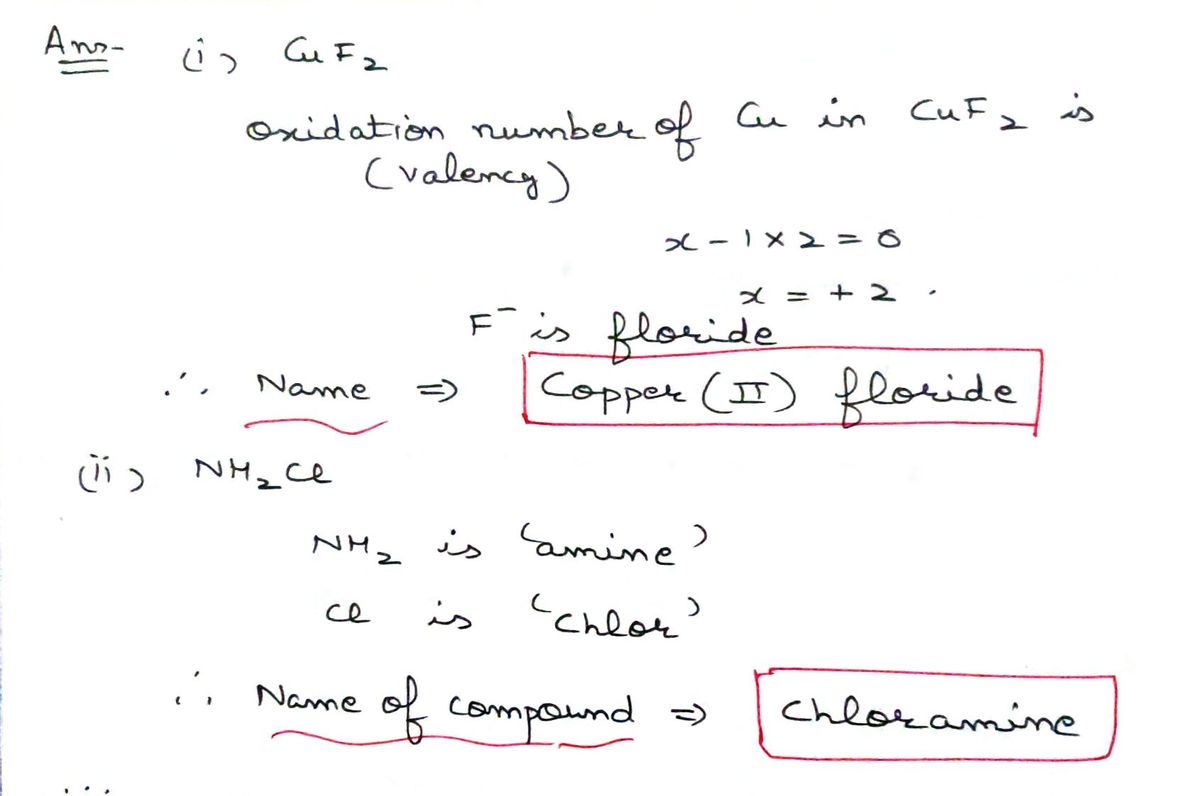 Ans- (i) CuF₂
oxidation number of Cu in CuF₂ is
(valency)
x - 1 × 2 = 0
x = + 2 .
F⁻ is floride
∴ Name ⇒ Copper (II) floride
(ii) NH₂Cl
NH₂ is 'amine'
Cl is 'chlor'
∴ Name of compound ⇒ chloramine
...